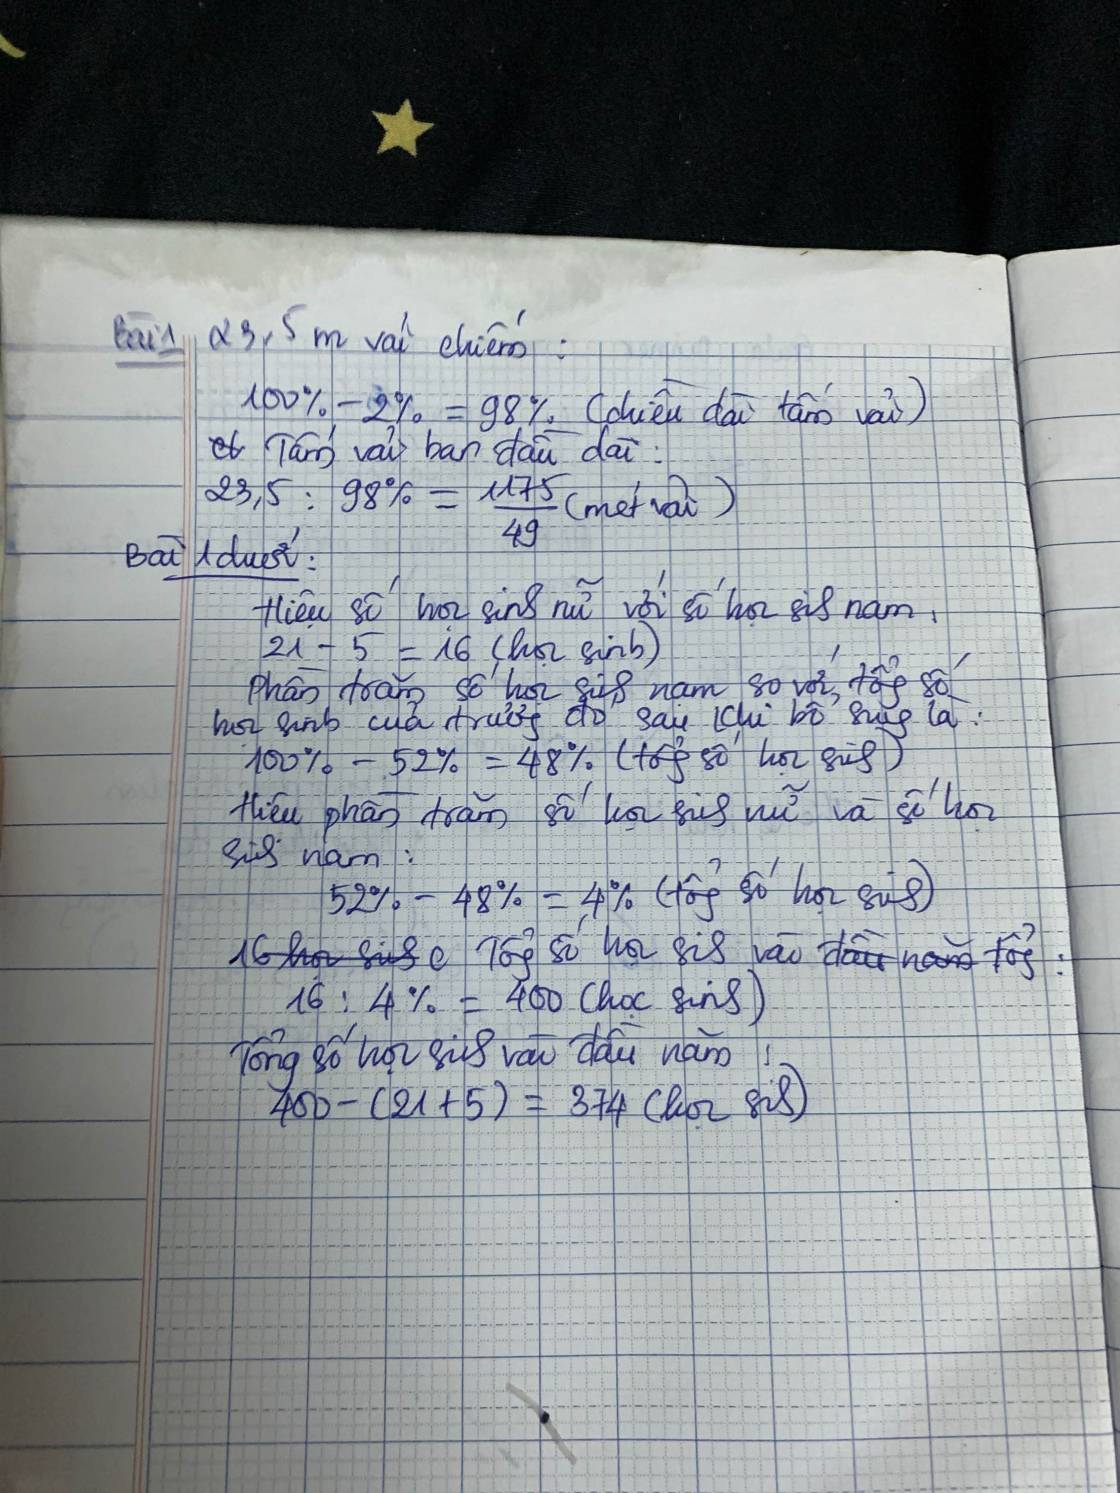 Bài 1 23,5 m vải chiếm :
100% - 2% = 98% (chiều dài tấm vải)
Tấm vải ban đầu dài :
23,5 : 98% = 1175/49 (mét vải)
Bài 1 dưới :
Hiệu số học sinh nữ với số học sinh nam :
21 - 5 = 16 (học sinh)
phần trăm số học sinh nam so với tổng số
học sinh của trường đó sau khi bổ sung là :
100% - 52% = 48% (tổng số học sinh)
Hiệu phần trăm số học sinh nữ và số học
sinh nam :
52% - 48% = 4% (tổng số học sinh)
16 học sinh Tổng số học sinh vào đầu năm tổng :
16 : 4% = 400 (học sinh)
Tổng số học sinh vào đầu năm :
400 - (21 + 5) = 374 (học sinh)